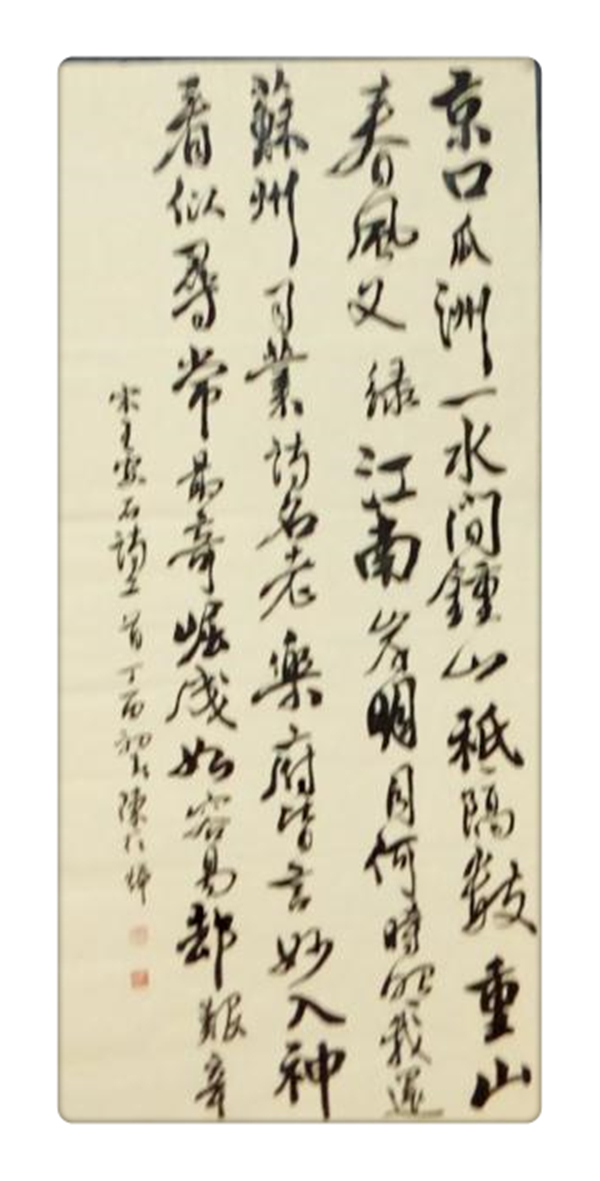 京口瓜洲一水間鍾山祇隔數重山
春風又緑江南岸明月何時照我還
蘇州司業詩名老樂府皆言妙入神
看似尋常最奇崛成如容易却艱辛
宋王安石詩二首丁酉初陳